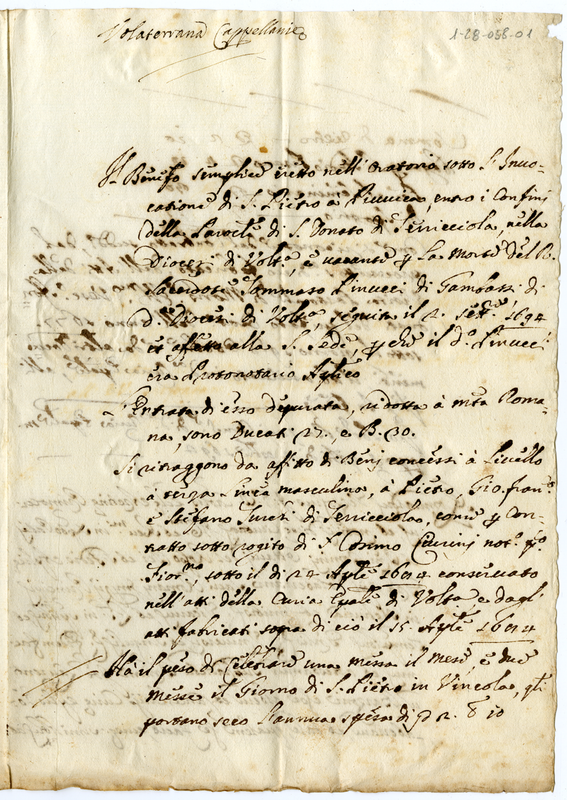 Volaterrana Cappellanie
1-28-058-01
Il Benefo semplice eretto nell' Oratorio sotto l' Invo-
catione di S. Pietro a entro i Confini
della Parole di S. Donato di Terricciola, nella
Diocesi di Volta, è vacante p la morte del R.
Sacerdote Tommaso Pinucci di Gambassi di
da Diocesi di Volta seguita il 2. 1694
et affetto alla S. Sede, p che il do Pinucci
era Protonotario Aplico
Entrate di esso depurata, ridotta à mta Roma-
na, sono Ducati 27. e B. 30.
Si ritraggono da affitto di Beni concessi à Livello
à terza linea masculina, à Pietro, Gio. Fran
e Stefano di Terricciola, come p Con-
tratto sotto rogito di Cosimo not.
Fior.no, sotto il di 24 Aple 1694 conservato
nell' atti della Curia Epale di Volta e dagl'
atti fabricati sopra di ciò il 15 Aple 1694
Hà il peso di Celebrare una messa il mese, e due
messe il Giorno di S. Pietro in Vincola, qli
portano seco l' annua spesa di 10